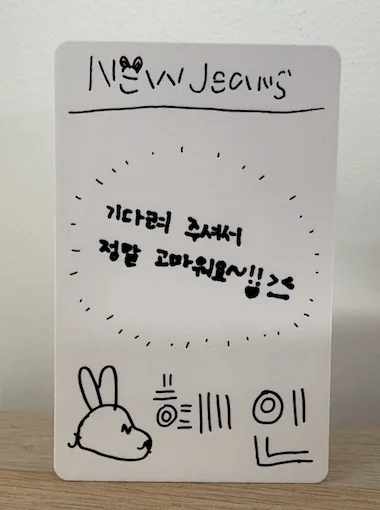 NEW Jeans
기다려 주셔서
정말 고마워요~!! ><
혜인